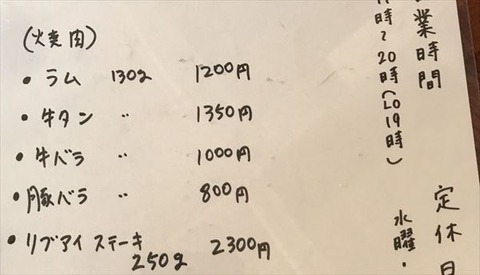 (焼肉)
・ラム 130g 1200円
・牛タン 〃 1350円
・牛バラ 〃 1000円
・豚バラ 〃 800円
・リブアイステーキ 250g 2300円
業時間
時~20時(LO19時)
定休日
水曜・